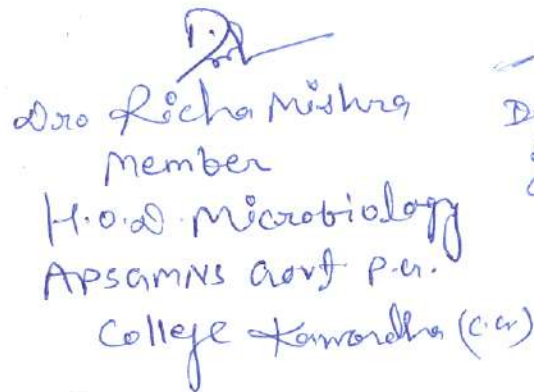 Dr. Richa Mishra
Member
H.O.D. Microbiology
APSGMNS Govt P.G.
College Kawardha (C.G)